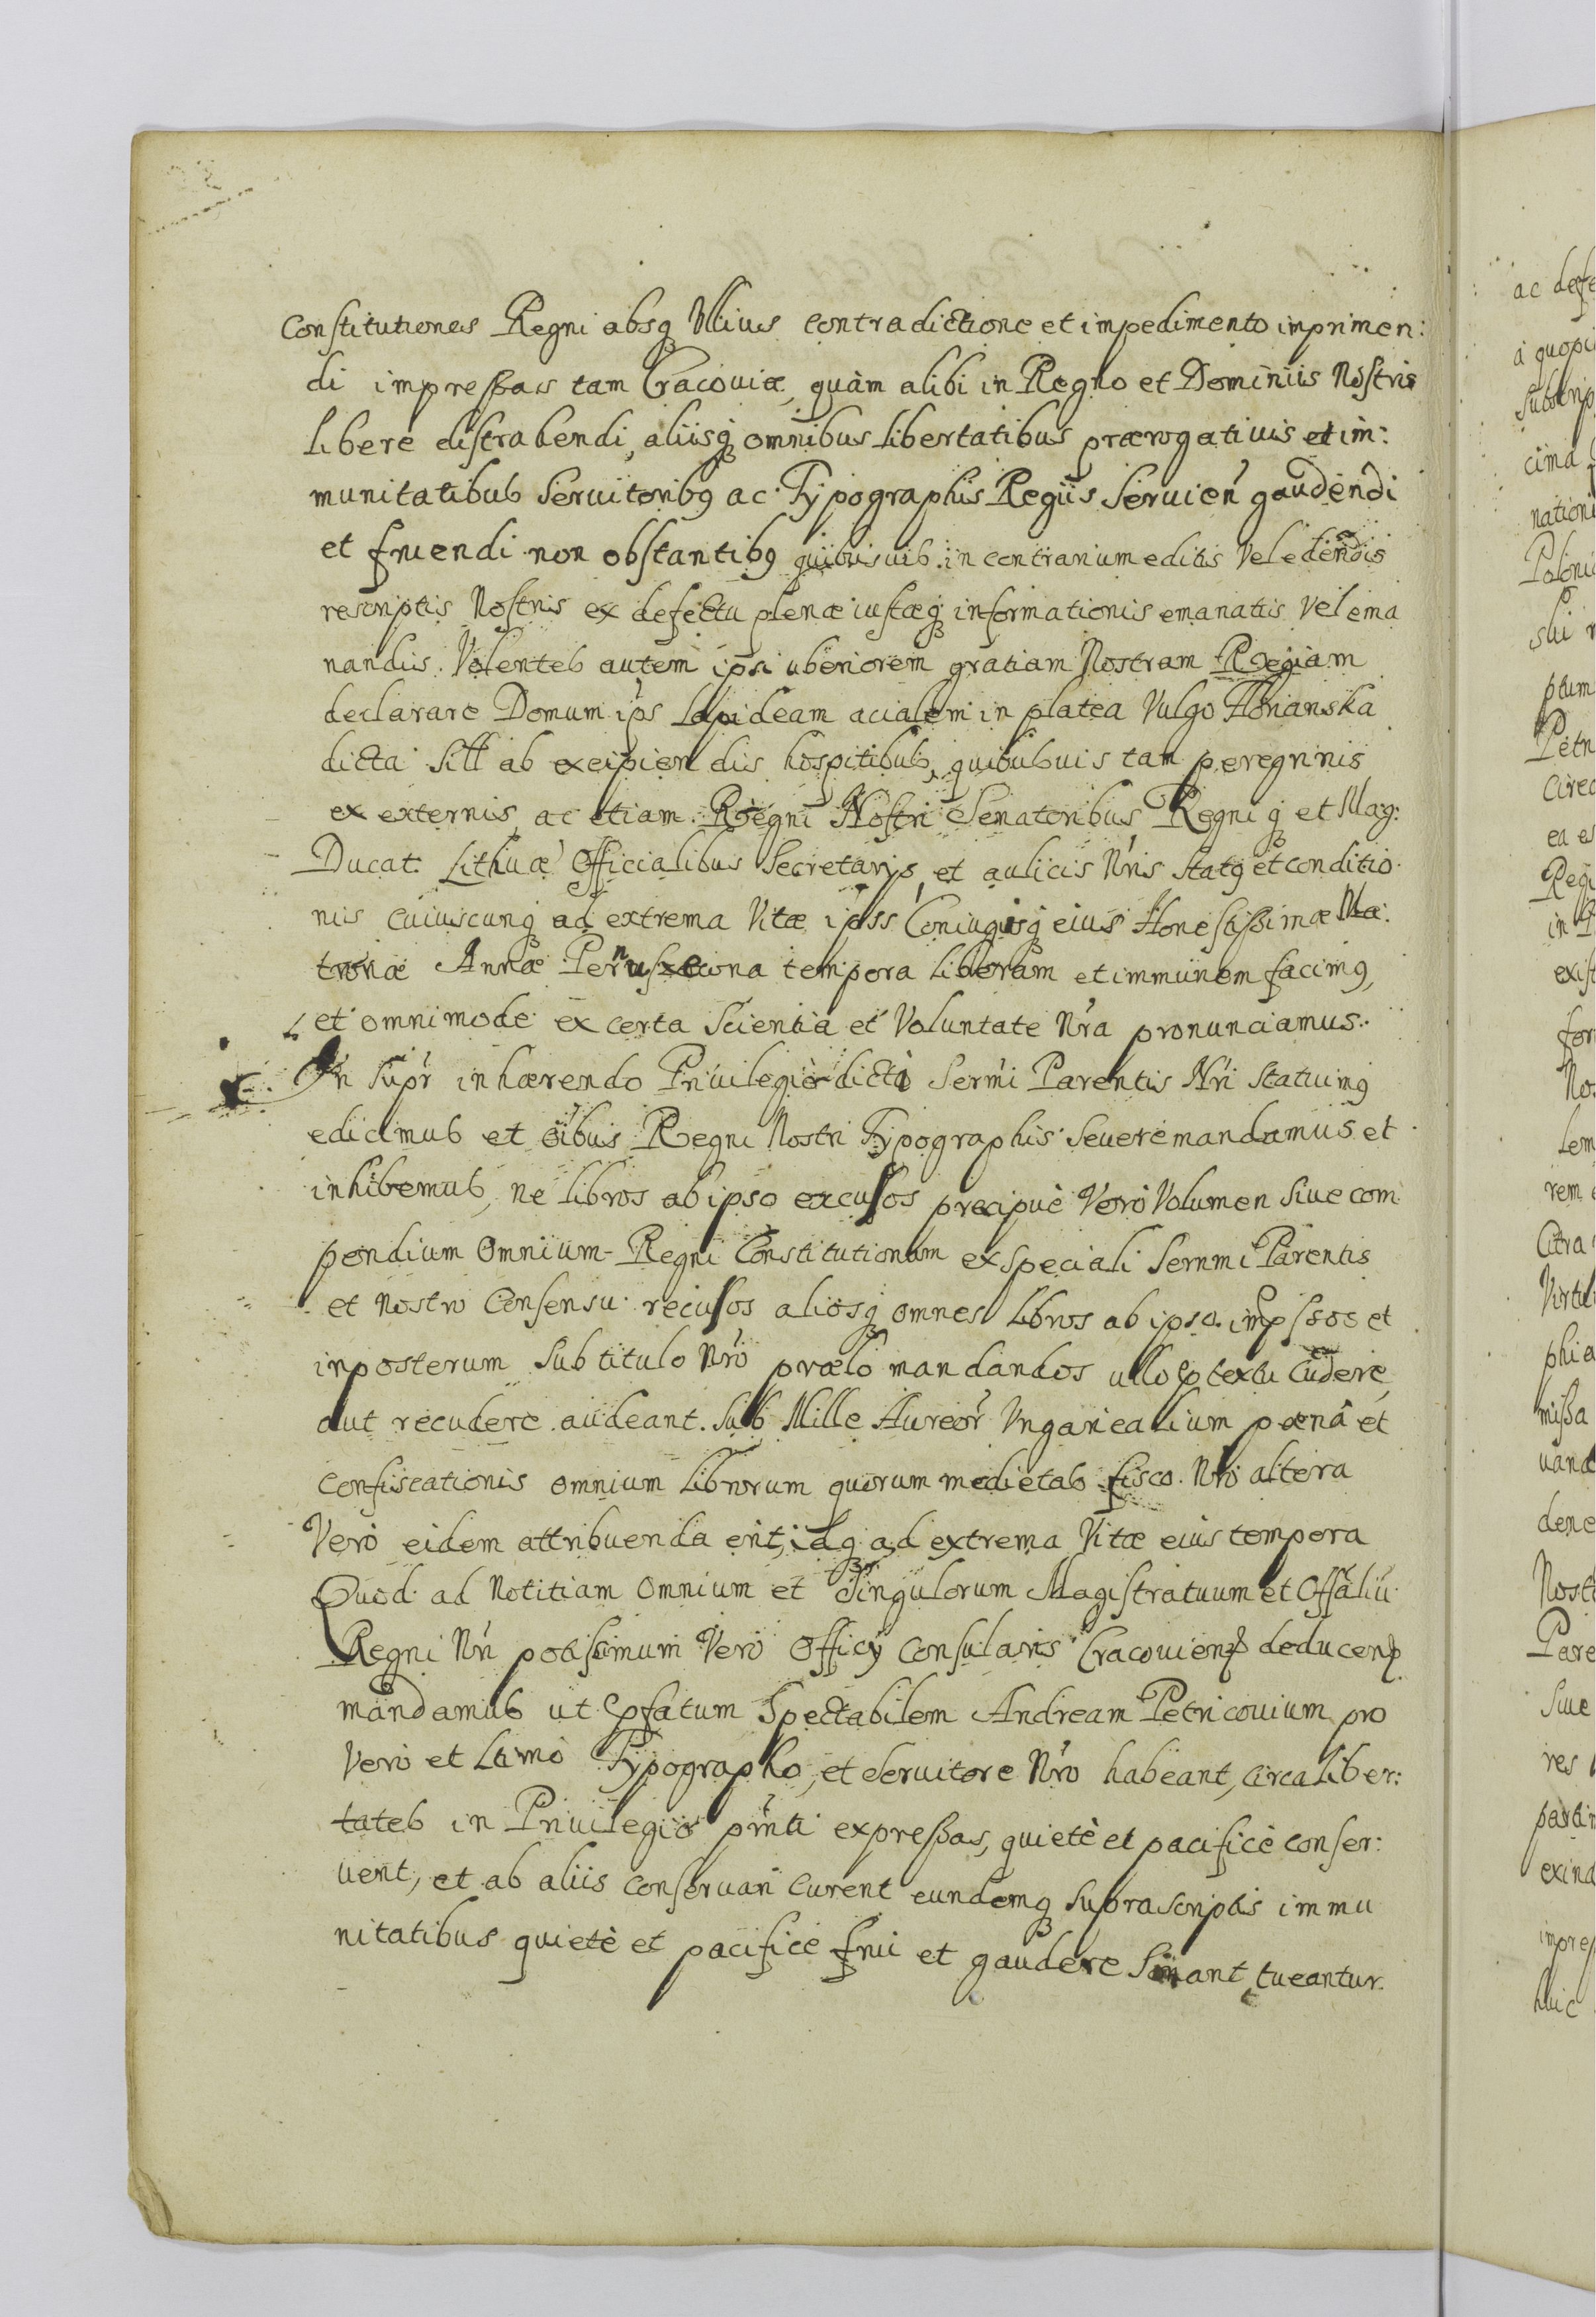 Constitutiones Regni absq Ullius contradictione et impedimento imprimen:
di impressas tam Cracoviæ, quàm alibi in Regno et Dominiis Nostris
Libere distrahendi, aliisq omnibus Libertatibus prærogativis et im:
munitatibus Servitoribg ac Typographis Regiis Servien̄ gaudendi
et fruendi non obstantibg quibusvis in contrarium editis Vel edendis
rescriptis Nostris ex defectu plenæ iustæq informationis emanatis Vel ema
nandis. Volentes autem ipsi uberiorem gratiam Nostram Regiam
declarare Domum ips Lapideam acialem in platea Vulgo Florianska
dicta Sitt ab excipiendis hospitibus, quibusvis tam peregrinis
ex externis, ac etiam Regni Nostri Senatoribus Regniq et Mag:
Ducat: Lithuæ Officialibus Secretarys, et aulicis Nris Statg et conditio
nis cuiuscunq ad extrema Vitæ ipss Coniugisq eius Honestissimæ Ma:
tronæ Annæ tempora Liberam et immunem facimg,
et omnimode ex certa Scientia et Voluntate Nra pronunciamus.
In Supr inhærendo Privilegio dicti Sermi Parentis Nri Statuimg
edicimus et oibus Regni Nostri Typographis Severe mandamus et
inhibemus, ne libros ab ipso excusos precipuè Verò Volumen Sive com
pendium Omnium Regni Constitutionum ex Speciali Sernmi Parentis
et Nostro Consensu recusos aliosq omnes Libros ab ipso impssos et
inposterum Sub titulo Nro prælo mandandos ullo ptextu Cudere,
aut recudere audeant. Sub Mille Aureor Vngaricalium poenâ et
Confiscationis omnium Librorum quorum medietas fisco Nro altera
Verò eidem attribuenda erit, idq ad extrema Vitæ eius tempora
Quod ad Notitiam Omnium et Singulorum Magistratuum et Offaliū
Regni Nri potissimum Verò Officy Consularis Cracovien deducen
mandamus ut pfatum Spectabilem Andream Petricovium pro
Vero et Ltimo Typographo, et Servitore Nro habeant, circa Liber:
tates in Privilegio pnti expressas, quietè et pacificè conser:
vent, et ab aliis conservari curent eundemq suprascriptis immu
nitatibus quietè et pacificè frui et gaudere Sinant, tueantur.